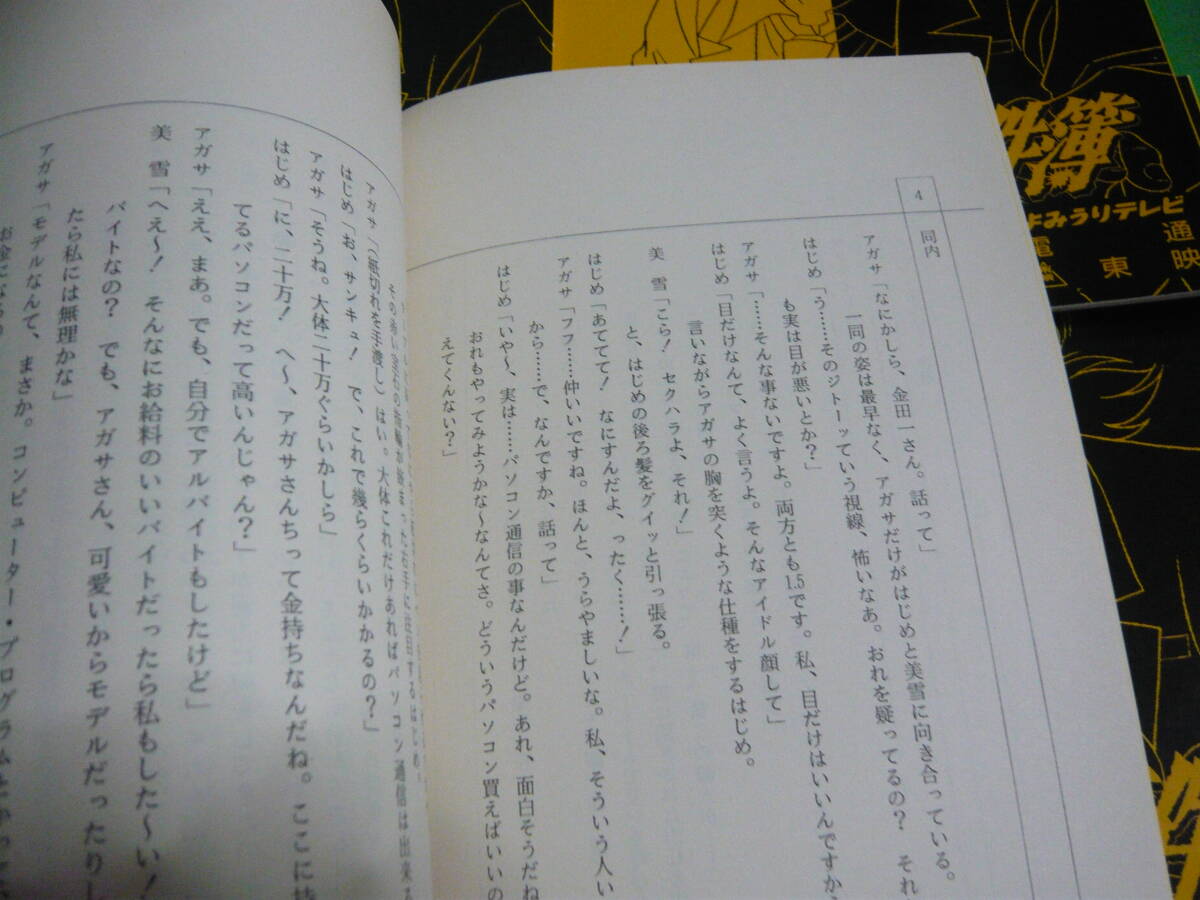 4
同内
アガサ「なにかしら、金田一さん。話って」
一同の姿は最早なく、アガサだけがはじめと美雪に向き合っている。
はじめ「う……そのジトーッていう視線、怖いなあ。おれを疑ってるの？ それ
も実は目が悪いとか？」
アガサ「……そんな事ないですよ。両方とも1.5です。私、目だけはいいんですか
はじめ「目だけなんて、よく言うよ。そんなアイドル顔して」
言いながらアガサの胸を突くような仕種をするはじめ。
美 雪「こら！ セクハラよ、それ！」
と、はじめの後ろ髪をグイッと引っ張る。
はじめ「あててて！ なにすんだよ、ったく……！」
アガサ「フフ……仲いいですね。ほんと、うらやましいな。私、そういう人い
から……で、なんですか、話って」
はじめ「いや〜、実は……パソコン通信の事なんだけど。あれ、面白そうだね
おれもやってみようかな〜なんてさ。どういうパソコン買えばいいの
えてくんない？」
アガサ「（紙切れを手渡し）はい。大体これだけあればパソコン通信は出来る
はじめ「お、サンキュ！ で、これで幾らくらいかかるの？」
アガサ「そうね。大体二十万ぐらいかしら」
はじめ「に、二十万！ へ〜、アガサさんちって金持ちなんだね。ここに
てるパソコンだって高いんじゃん？」
アガサ「ええ、まあ。でも、自分でアルバイトもしたけど」
美 雪「へえ〜！ そんなにお給料のいいバイトだったら私もした〜い！
バイトなの？ でも、アガサさん、可愛いからモデルだったりし
たら私には無理かな」
アガサ「モデルなんて、まさか。コンピューター・プログラム
件簿
よみうりテレビ
電通
東映